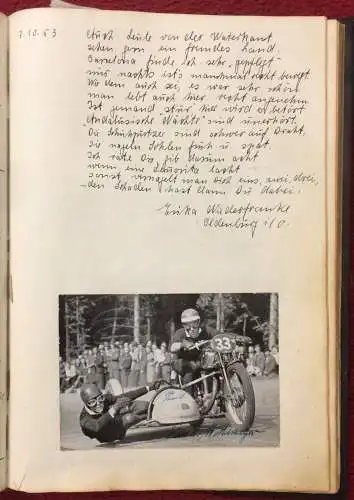 7.10.53
Auch Leute von der Waterkant
sehen gern ein fremdes Land.
Barcelona finde ich sehr „gepflegt"
nur nachts ist's manchmal recht bewegt.
Wo dem auch sei, es war sehr schön
man lebt auch hier recht angenehm.
Ist jemand stur hier wird er betört
„Andalusische Nächte" sind unerhört.
Die Schuhputzer sind schwer auf Draht.
Sie nageln Sohlen früh u. spät.
Ich rate Dir, gib darum acht
wenn eine Senorita lacht
sonst vernagelt man Dich eins, zwei, drei,
den Schaden hast dann Du dabei.
Erika
Oldenburg i/O.
33